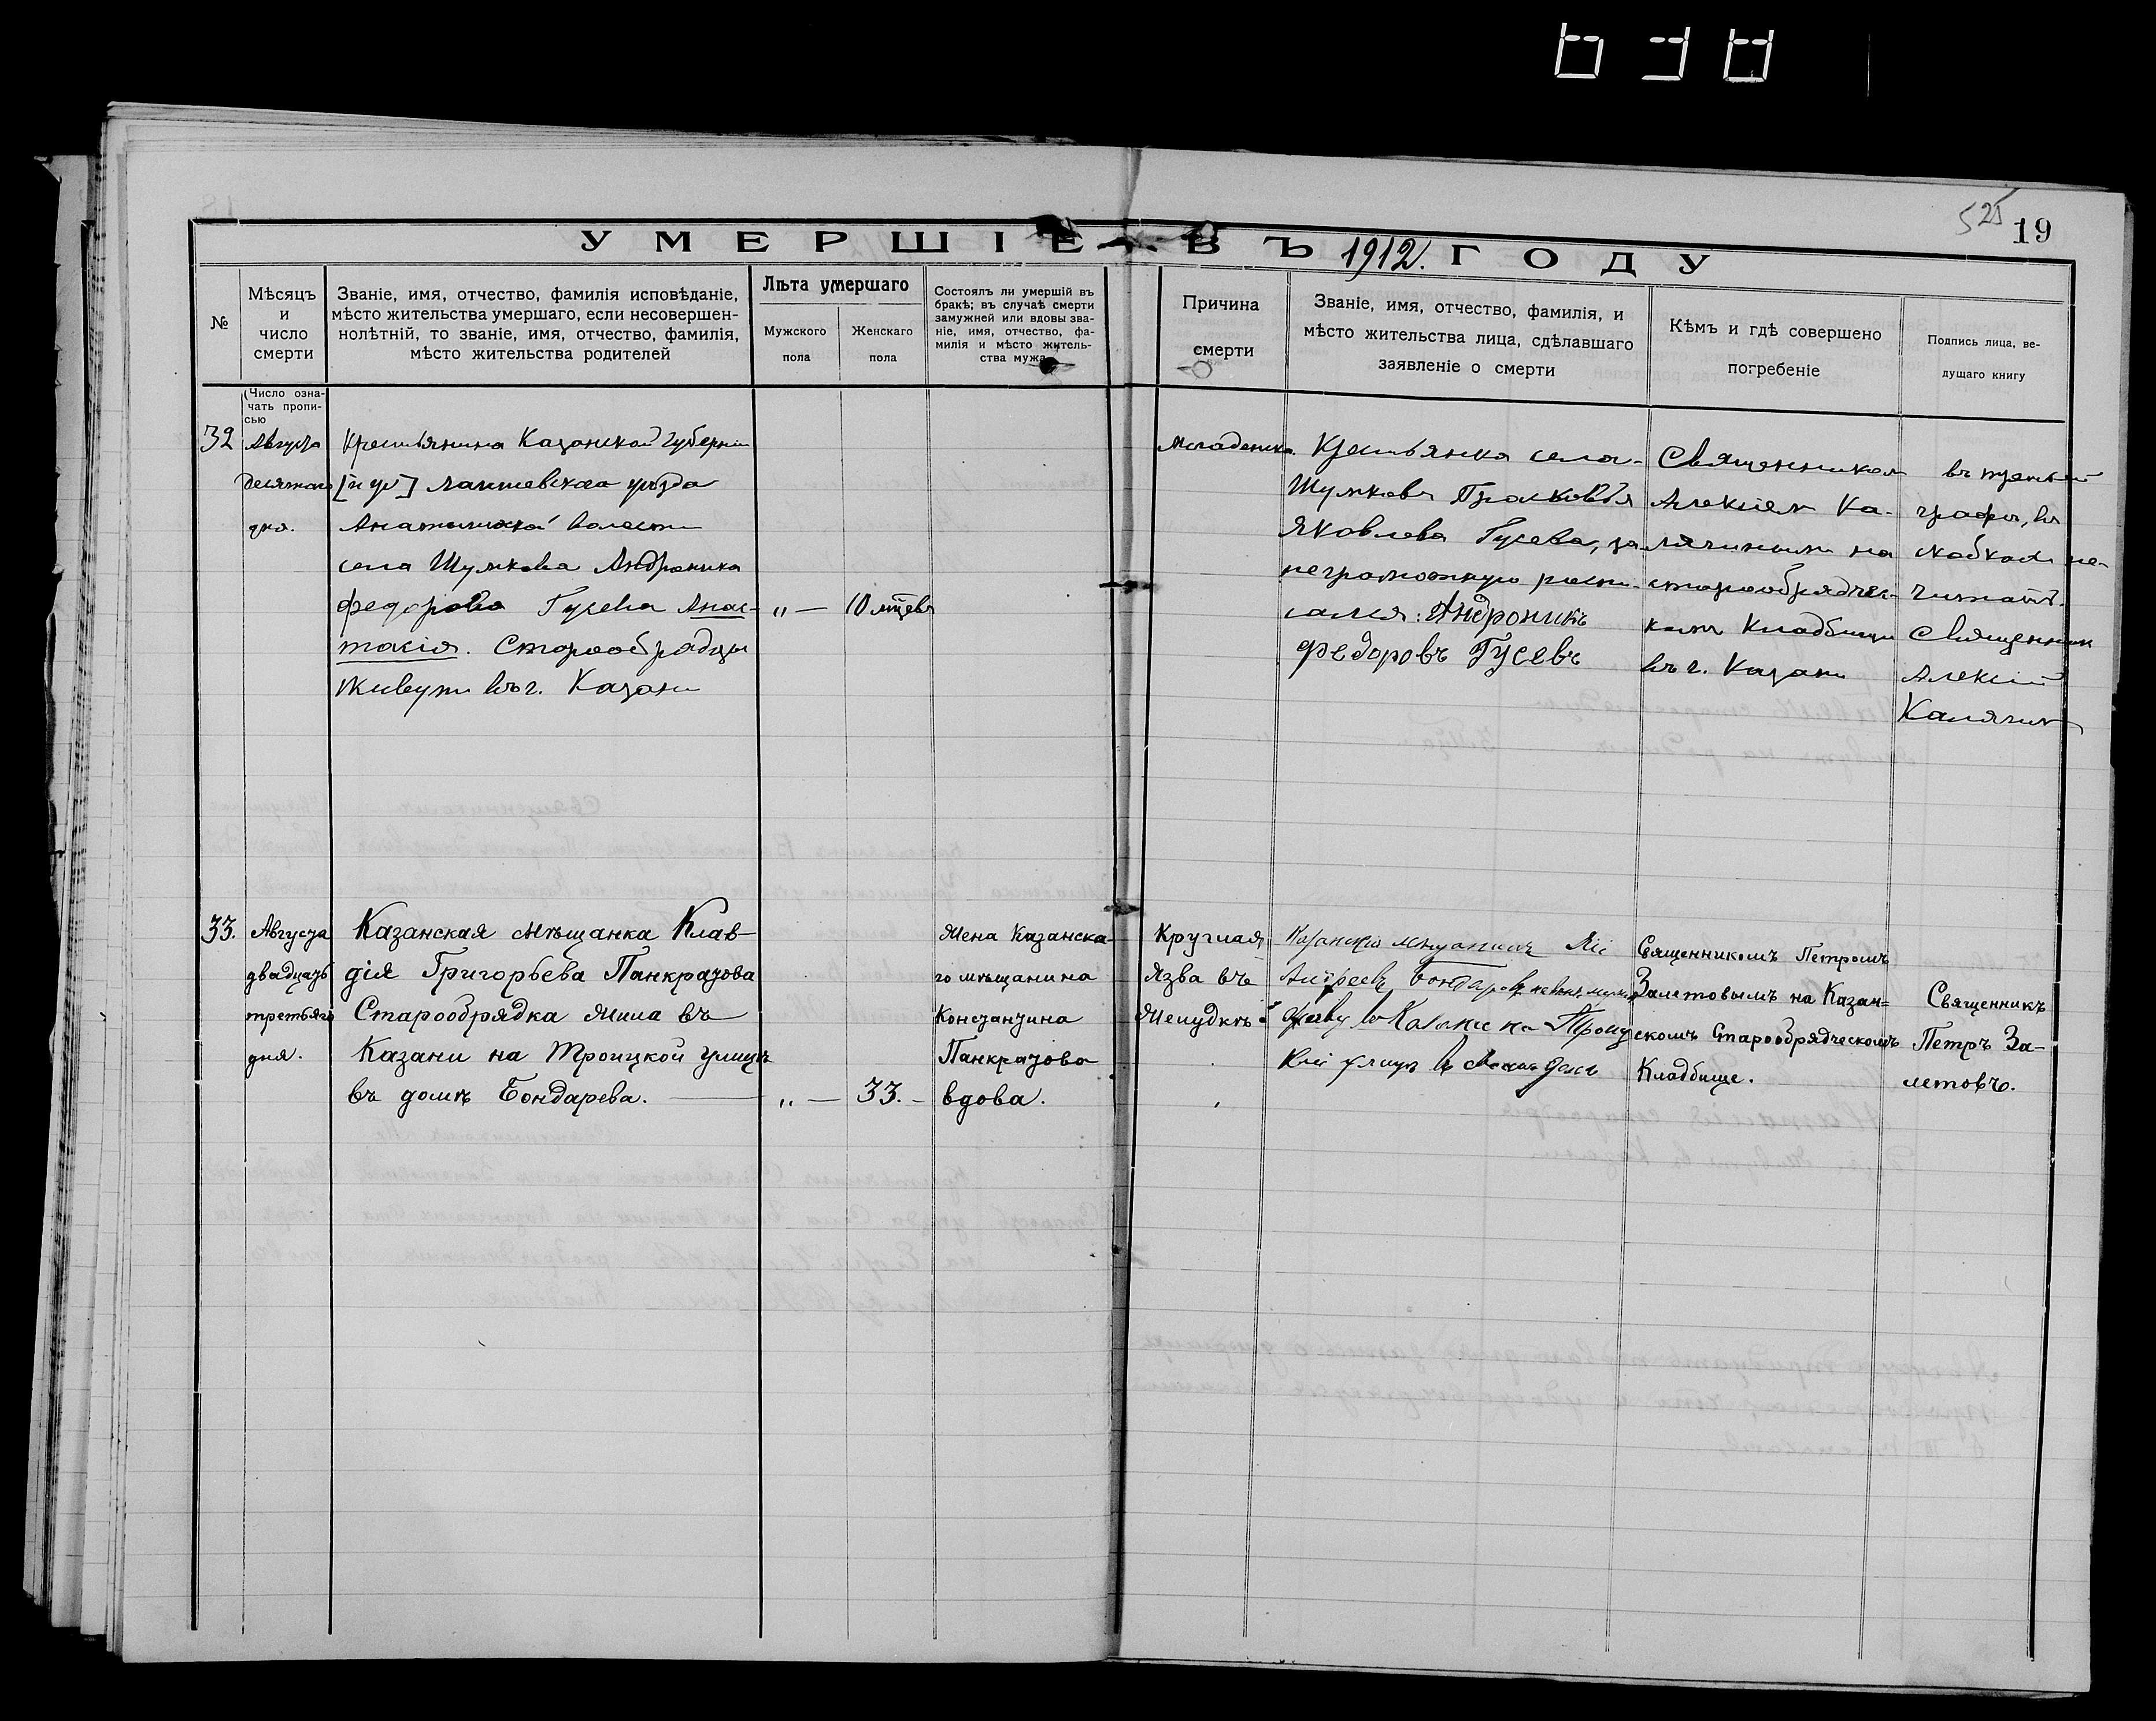 525
19
УМЕРШІЕ ВЪ 1912 ГОДУ
№
Мѣсяцъ
и
число
смерти
Званіе, имя, отчество, фамилія исповѣданіе,
мѣсто жительства умершаго, если несовершен-
нолѣтній, то званіе, имя, отчество, фамилія,
мѣсто жительства родителей
Лѣта умершаго
Мужского
пола
Женскаго
пола
Состоялъ ли умершій въ
бракѣ; въ случаѣ смерти
замужней или вдовы зва-
ніе, имя, отчество, фа-
милія и мѣсто житель-
ства мужа
Причина
смерти
Званіе, имя, отчество, фамилія, и
мѣсто жительства лица, сдѣлавшаго
заявленіе о смерти
Кѣмъ и гдѣ совершено
погребеніе
Подпись лица, ве-
дущаго книгу
(Число озна-
чать пропи-
сью
32
Августа
десятаго
дня.
Крестьянина Казанской губерніи
Лаишевскаго уѣзда
волости
села Шумкова Андроника
Федорова Гусева Анас-
тасія. Старообрядцы
живутъ въ г. Казани
„ —
10 мѣцевъ
Младенка.
Крестьянка села
Шумкова Прасковья
Яковлева Гусева, за
неграмотную роспи-
сался: Андроникъ
Федоровъ Гусевъ
Священникомъ
Алексіем Ка-
лягинымъ на
старообрядчес-
комъ Кладбищѣ
въ г. Казани
въ третьей
графѣ, въ
скобках не-
читать.
Священник
Алексій
Калягинъ
33.
Августа
двадцать
третьяго
дня.
Казанская мѣщанка Клав-
дія Григорьева Панкратова
Старообрядка жила въ
Казани на Троицкой улицѣ
въ домѣ Бондарева.
„ —
33. -
Жена Казанска-
го мѣщанина
Констанзина
Панкратова
вдова.
Круглая
Язва въ
Желудкѣ
Казанскій мѣщанинъ
Андреевъ Бондаревъ
живу въ Казани на Троиц
кой улицѣ въ домѣ
Священникомъ Петромъ
Залетовымъ на Казан=
скомъ Старообрядческомъ
Кладбище.
Священникъ
Петръ За-
летовъ.